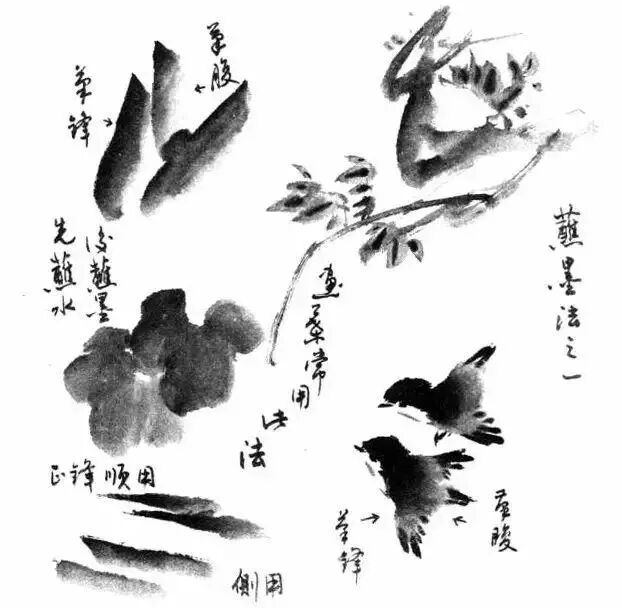 蘸墨法之一
笔腹
笔锋
先蘸水
後蘸墨
画叶常用此法
正锋顺用
侧用
笔锋
笔腹